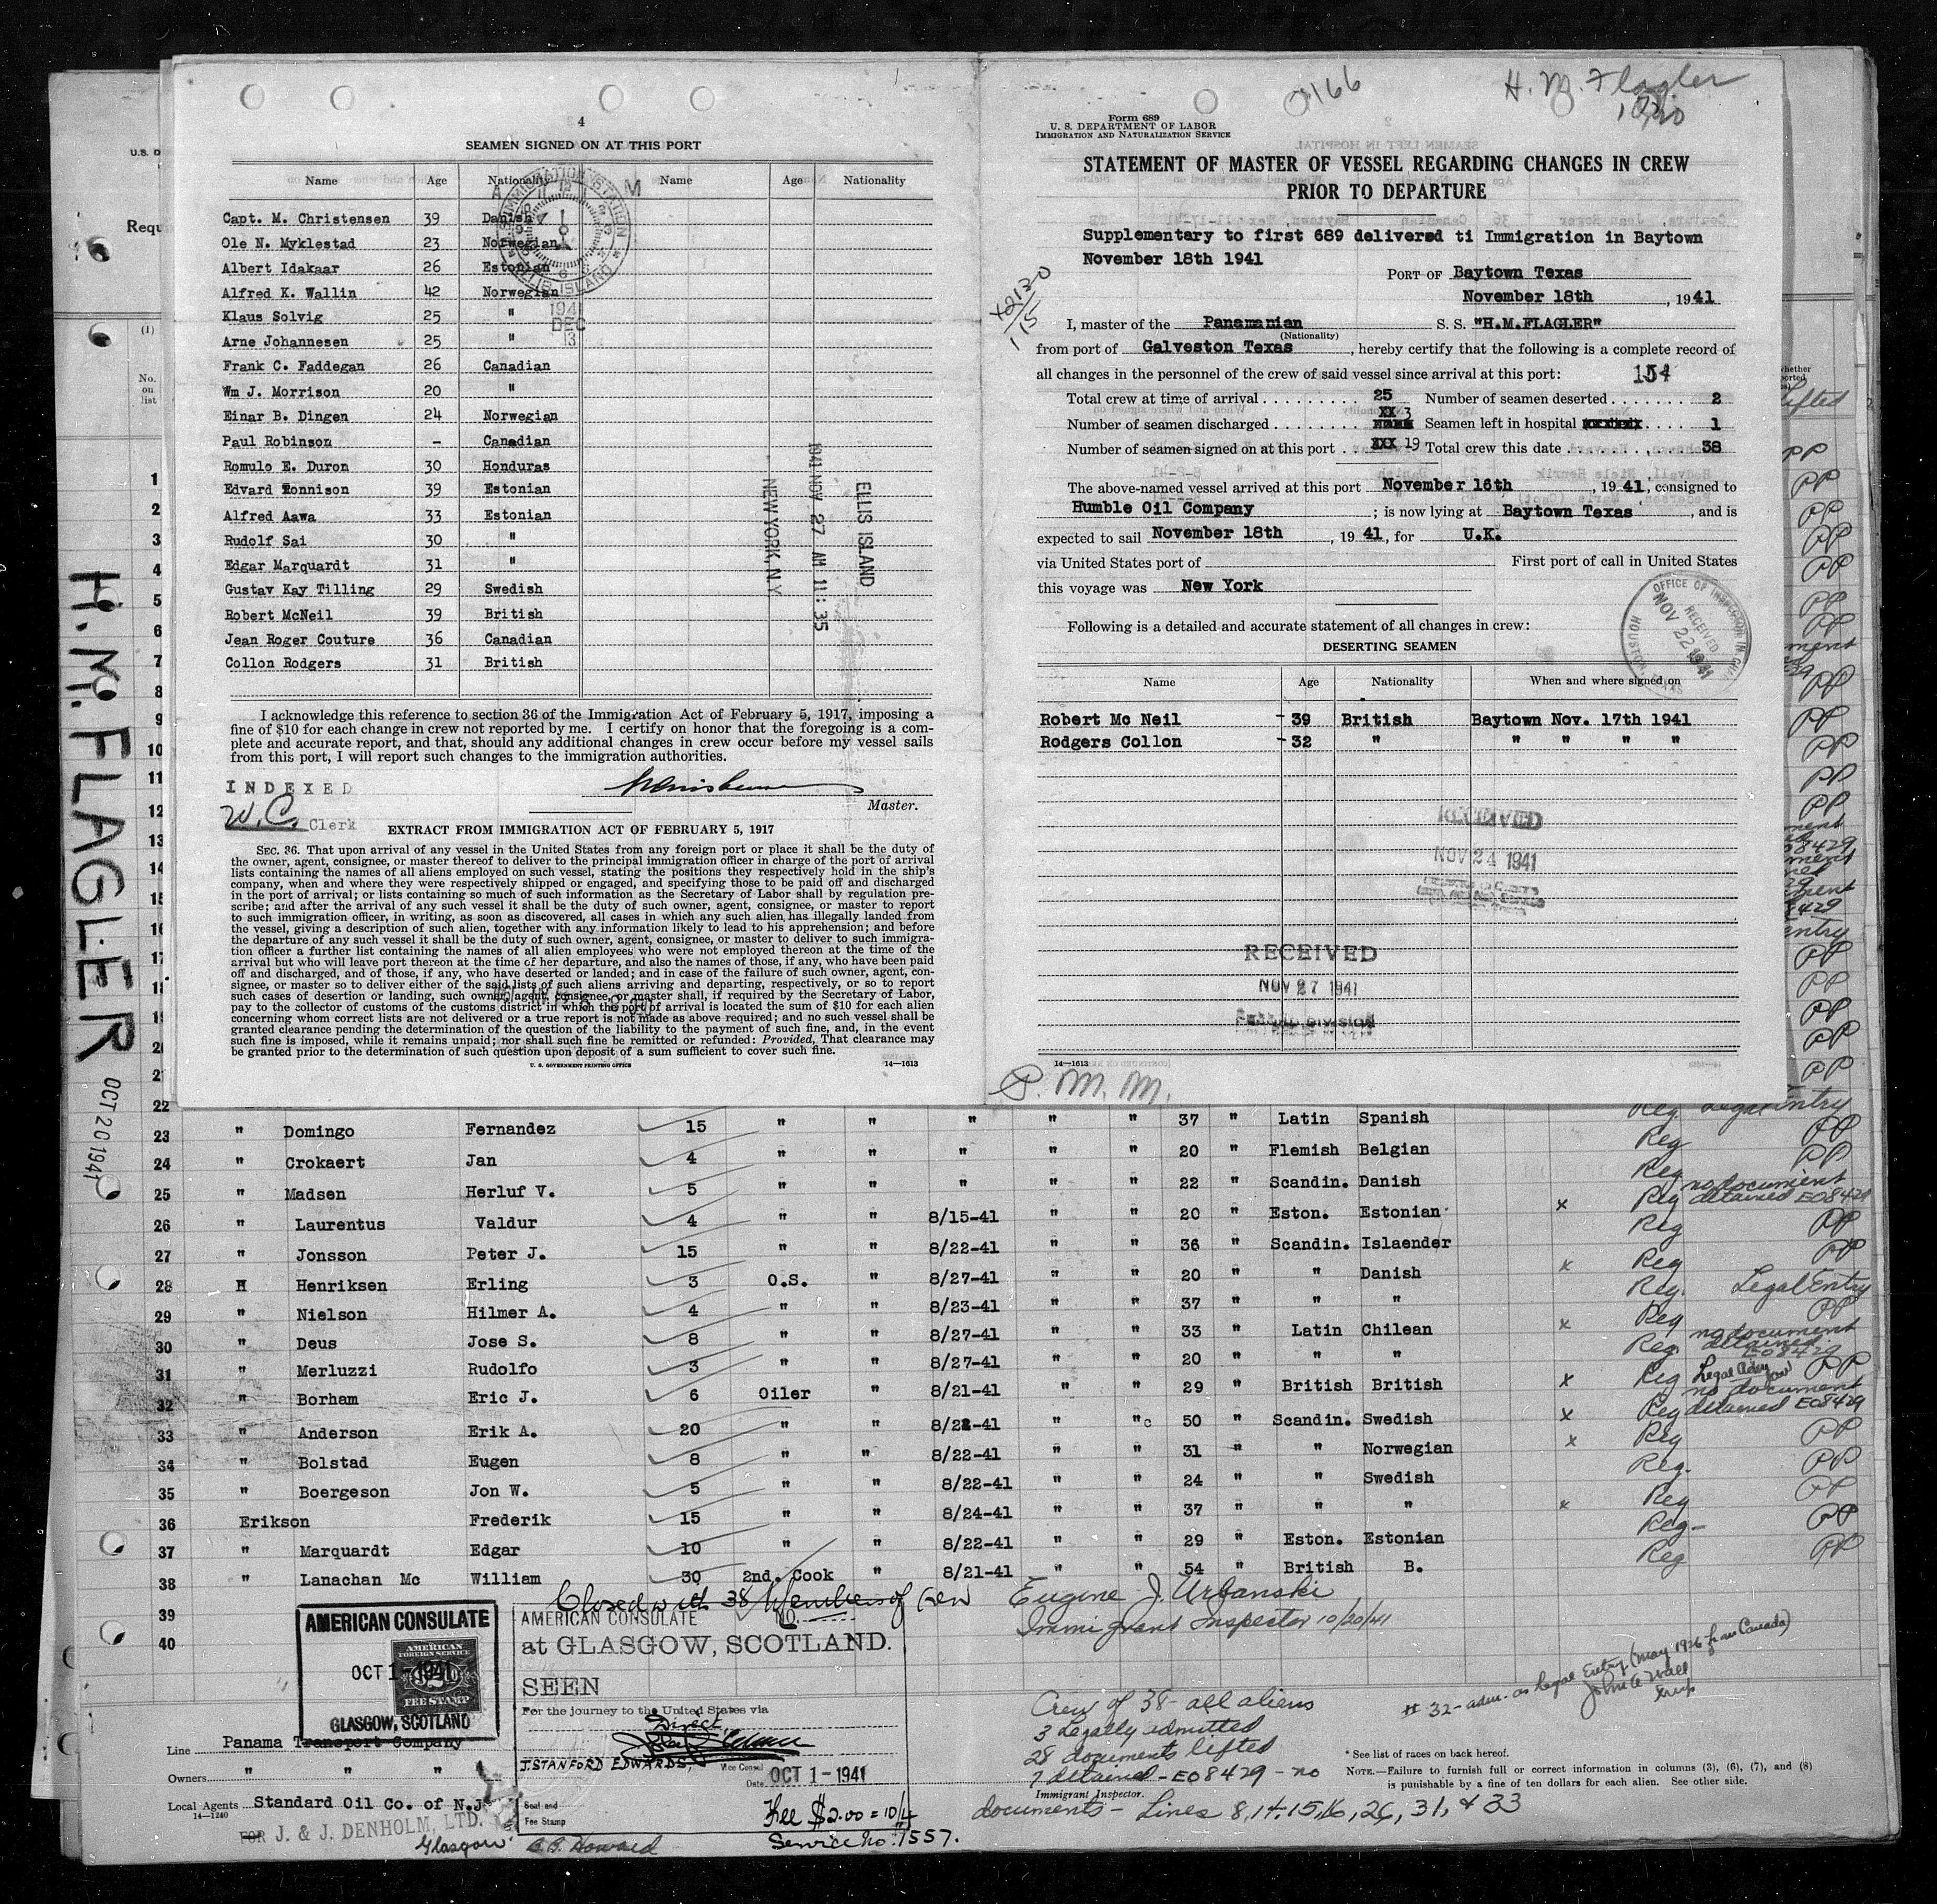 H. M. Flagler
4
SEAMEN SIGNED ON AT THIS PORT
Name Age Nationality Name Age Nationality
Capt. M. Christensen 39 Danish
Ole N. Myklestad 23 Norwegian
Albert Idakaar 26 Estonian
Alfred K. Wallin 42 Norwegian
Klaus Solvig 25 "
Arne Johannesen 25 "
Frank C. Faddegan 26 Canadian
Wm J. Morrison 20 "
Einar B. Dingen 24 Norwegian
Paul Robinson - Canadian
Romulo E. Duron 30 Honduras
Edvard Tonnison 39 Estonian
Alfred Aawa 33 Estonian
Rudolf Sai 30 "
Edgar Marquardt 31 "
Gustav Kay Tilling 29 Swedish
Robert McNeil 39 British
Jean Roger Couture 36 Canadian
Collon Rodgers 31 British
IMMIGRATION STATION
ELLIS ISLAND
1941
DEC
13
ELLIS ISLAND
1941 NOV 27 AM 11:35
NEW YORK, N.Y
I acknowledge this reference to section 36 of the Immigration Act of February 5, 1917, imposing a
fine of $10 for each change in crew not reported by me. I certify on honor that the foregoing is a com-
plete and accurate report, and that, should any additional changes in crew occur before my vessel sails
from this port, I will report such changes to the immigration authorities.
INDEXED
W.C. Clerk
Master.
EXTRACT FROM IMMIGRATION ACT OF FEBRUARY 5, 1917
SEC. 36. That upon arrival of any vessel in the United States from any foreign port or place it shall be the duty of
the owner, agent, consignee, or master thereof to deliver to the principal immigration officer in charge of the port of arrival
lists containing the names of all aliens employed on such vessel, stating the positions they respectively hold in the ship's
company, when and where they were respectively shipped or engaged, and specifying those to be paid off and discharged
in the port of arrival; or lists containing so much of such information as the Secretary of Labor shall by regulation pre-
scribe; and after the arrival of any such vessel it shall be the duty of such owner, agent, consignee, or master to report
to such immigration officer, in writing, as soon as discovered, all cases in which any such alien has illegally landed from
the vessel, giving a description of such alien, together with any information likely to lead to his apprehension; and before
the departure of any such vessel it shall be the duty of such owner, agent, consignee, or master to deliver to such immigra-
tion officer a further list containing the names of all alien employees who were not employed thereon at the time of the
arrival but who will leave port thereon at the time of her departure, and also the names of those, if any, who have been paid
off and discharged, and of those, if any, who have deserted or landed; and in case of the failure of such owner, agent, con-
signee, or master so to deliver either of the said lists of such aliens arriving and departing, respectively, or so to report
such cases of desertion or landing, such owner, agent, consignee, or master shall, if required by the Secretary of Labor,
pay to the collector of customs of the customs district in which the port of arrival is located the sum of $10 for each alien
concerning whom correct lists are not delivered or a true report is not made as above required; and no such vessel shall be
granted clearance pending the determination of the question of the liability to the payment of such fine, and, in the event
such fine is imposed, while it remains unpaid; nor shall such fine be remitted or refunded: Provided, That clearance may
be granted prior to the determination of such question upon deposit of a sum sufficient to cover such fine.
U. S. GOVERNMENT PRINTING OFFICE 14—1613
Form 689
U. S. DEPARTMENT OF LABOR
IMMIGRATION AND NATURALIZATION SERVICE
STATEMENT OF MASTER OF VESSEL REGARDING CHANGES IN CREW
PRIOR TO DEPARTURE
Supplementary to first 689 delivered ti Immigration in Baytown
November 18th 1941
PORT OF Baytown Texas
November 18th , 1941
I, master of the Panamanian S. S. "H.M.FLAGLER"
(Nationality)
from port of Galveston Texas , hereby certify that the following is a complete record of
all changes in the personnel of the crew of said vessel since arrival at this port:
Total crew at time of arrival 25 Number of seamen deserted 2
Number of seamen discharged 3 Seamen left in hospital 1
Number of seamen signed on at this port 19 Total crew this date 38
The above-named vessel arrived at this port November 16th , 1941, consigned to
Humble Oil Company ; is now lying at Baytown Texas , and is
expected to sail November 18th , 1941, for U.K.
via United States port of First port of call in United States
this voyage was New York
Following is a detailed and accurate statement of all changes in crew:
OFFICE OF INSPECTOR IN CH.
RECEIVED
NOV 22 1941
HOUSTON, TEXAS
DESERTING SEAMEN
Name Age Nationality When and where signed on
Robert Mc Neil 39 British Baytown Nov. 17th 1941
Rodgers Collon 32 " " " " "
RECEIVED
NOV 24 1941
RECEIVED
NOV 27 1941
14—1613
P. M. M.
H.M. FLAGLER
OCT 20 1941
U.S. D
Requ
(1)
No.
on
list
1
2
3
4
5
6
7
8
9
10
11
12
13
14
15
16
17
22
23 " Domingo Fernandez 15 " " " " " 37 " Latin Spanish Reg PP
24 " Crokaert Jan 4 " " " " " 20 " Flemish Belgian Reg PP
25 " Madsen Herluf V. 5 " " " " " 22 " Scandin. Danish Reg
26 " Laurentus Valdur 4 " " 8/15-41 " " 20 " Eston. Estonian x Reg no document detained E08429
27 " Jonsson Peter J. 15 " " 8/22-41 " " 36 " Scandin. Islaender Reg PP
28 H Henriksen Erling 3 O.S. " 8/27-41 " " 20 " " Danish x Reg PP
29 " Nielson Hilmer A. 4 " " 8/23-41 " " 37 " " " Reg. Legal Entry
30 " Deus Jose S. 8 " " 8/27-41 " " 33 " Latin Chilean x Reg PP
31 " Merluzzi Rudolfo 3 " " 8/27-41 " " 20 " " " Reg no document detained E08429
32 " Borham Eric J. 6 Oiler " 8/21-41 " " 29 " British British x Reg PP
33 " Anderson Erik A. 20 " " 8/22-41 " "c 50 " Scandin. Swedish x Reg no document detained E08429
34 " Bolstad Eugen 8 " " 8/22-41 " " 31 " " Norwegian x Reg PP
35 " Boergeson Jon W. 5 " " 8/22-41 " " 24 " " Swedish Reg. PP
36 Erikson Frederik 15 " " 8/24-41 " " 37 " " " x Reg PP
37 " Marquardt Edgar 10 " " 8/22-41 " " 29 " Eston. Estonian Reg- PP
38 " Lanachan Mc William 30 2nd. Cook " 8/21-41 " " 54 " British B. Reg PP
39
40
Closed with 38 Members of Crew Eugene J. Urbanski
Immigrant Inspector 10/20/41
AMERICAN CONSULATE
AMERICAN
FOREIGN SERVICE
$2
FEE STAMP
OCT 1-1941
GLASGOW, SCOTLAND
AMERICAN CONSULATE NO.
at GLASGOW, SCOTLAND.
SEEN
For the journey to the United States via
Direct
J. STANFORD EDWARDS, Vice Consul
Date OCT 1-1941
Seal and
Fee Stamp
Fee $2.00 = 10/4
Service No: 7557.
Line Panama Transport Company
Owners " " "
Local Agents Standard Oil Co. of N.J
14—1240
FOR J. & J. DENHOLM, LTD.
Glasgow
Crew of 38- all aliens
3 legally admitted
28 documents lifted
7 detained - E08429 - no
Immigrant Inspector.
documents - Lines 8, 14, 15, 16, 26, 31, & 33
# 32- adm. as legal Entry (May 1926 from Canada)
* See list of races on back hereof.
NOTE.—Failure to furnish full or correct information in columns (3), (6), (7), and (8)
is punishable by a fine of ten dollars for each alien. See other side.